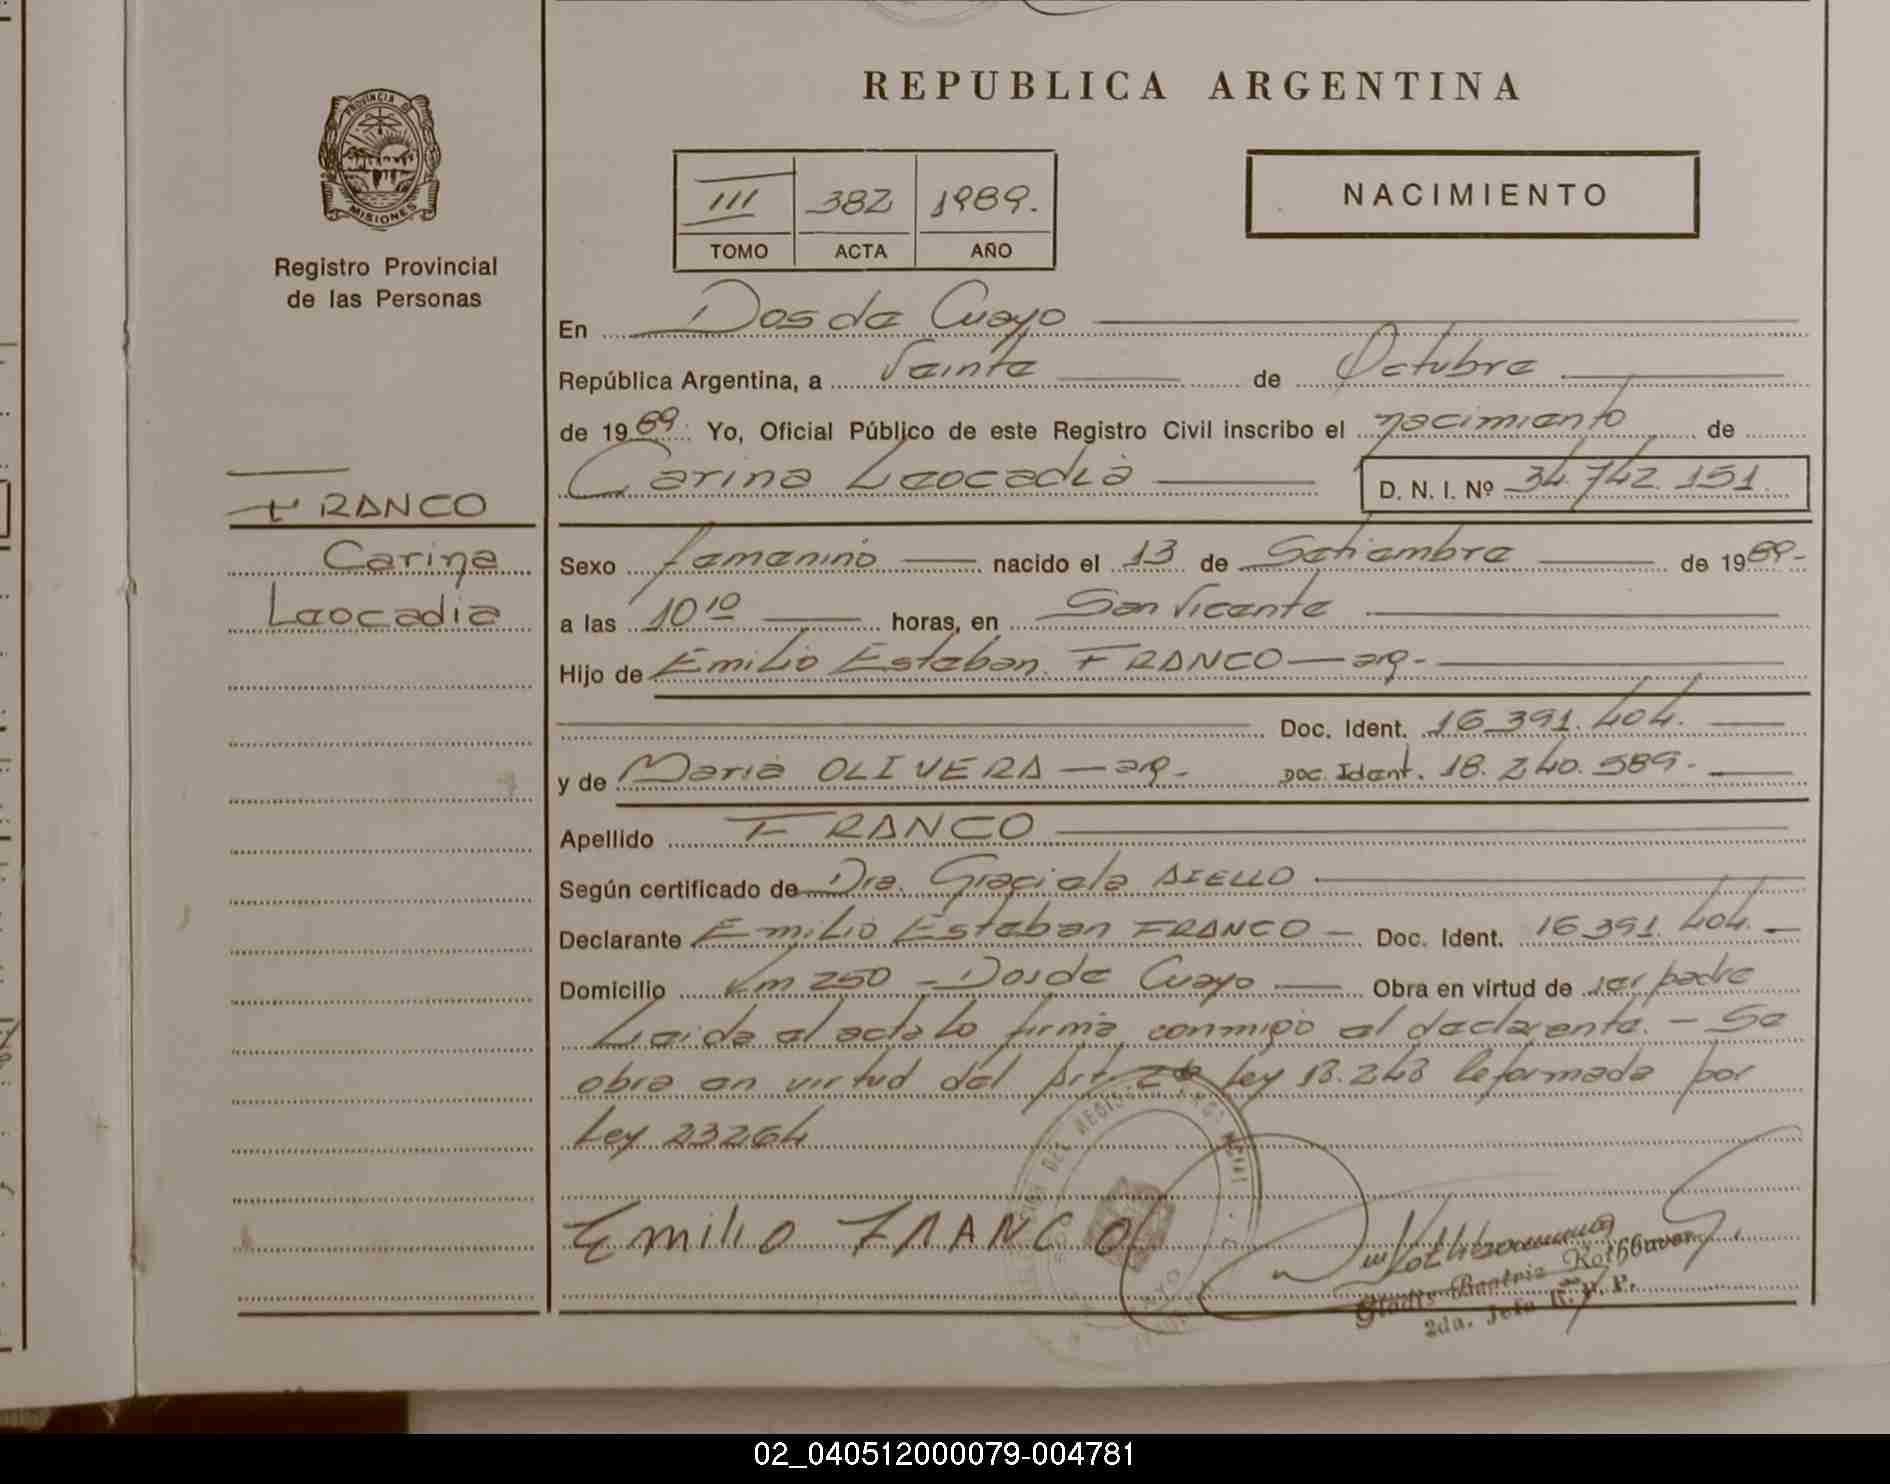 REPUBLICA ARGENTINA
PROVINCIA DE
MISIONES
Registro Provincial
de las Personas
III 382 1989.
TOMO ACTA AÑO
NACIMIENTO
En Dos de Mayo
República Argentina, a Veinte de Octubre
de 1989. Yo, Oficial Público de este Registro Civil inscribo el nacimiento de
Carina Leocadia D. N. I. Nº 34.742.151
FRANCO
Carina
Leocadia
Sexo femenino nacido el 13 de Setiembre de 1989-
a las 10 10 horas, en San Vicente
Hijo de Emilio Esteban FRANCO — arg-
Doc. Ident. 16.391.404.
y de Maria OLIVERA — arg- Doc. Ident. 18.240.589.
Apellido FRANCO
Según certificado de Dra. Graciela AIELLO
Declarante Emilio Esteban FRANCO — Doc. Ident. 16.391.404.
Domicilio Km 250 - Dos de Mayo Obra en virtud de ser padre
Leida el acta la firma conmigo el declarante. - Se
obra en virtud del Art. 2 de Ley 18.248 reformada por
Ley 23264
Emilio FRANCO
Gladis Beatriz Rothbauer
2da. Jefa R. P. P.
02_040512000079-004781